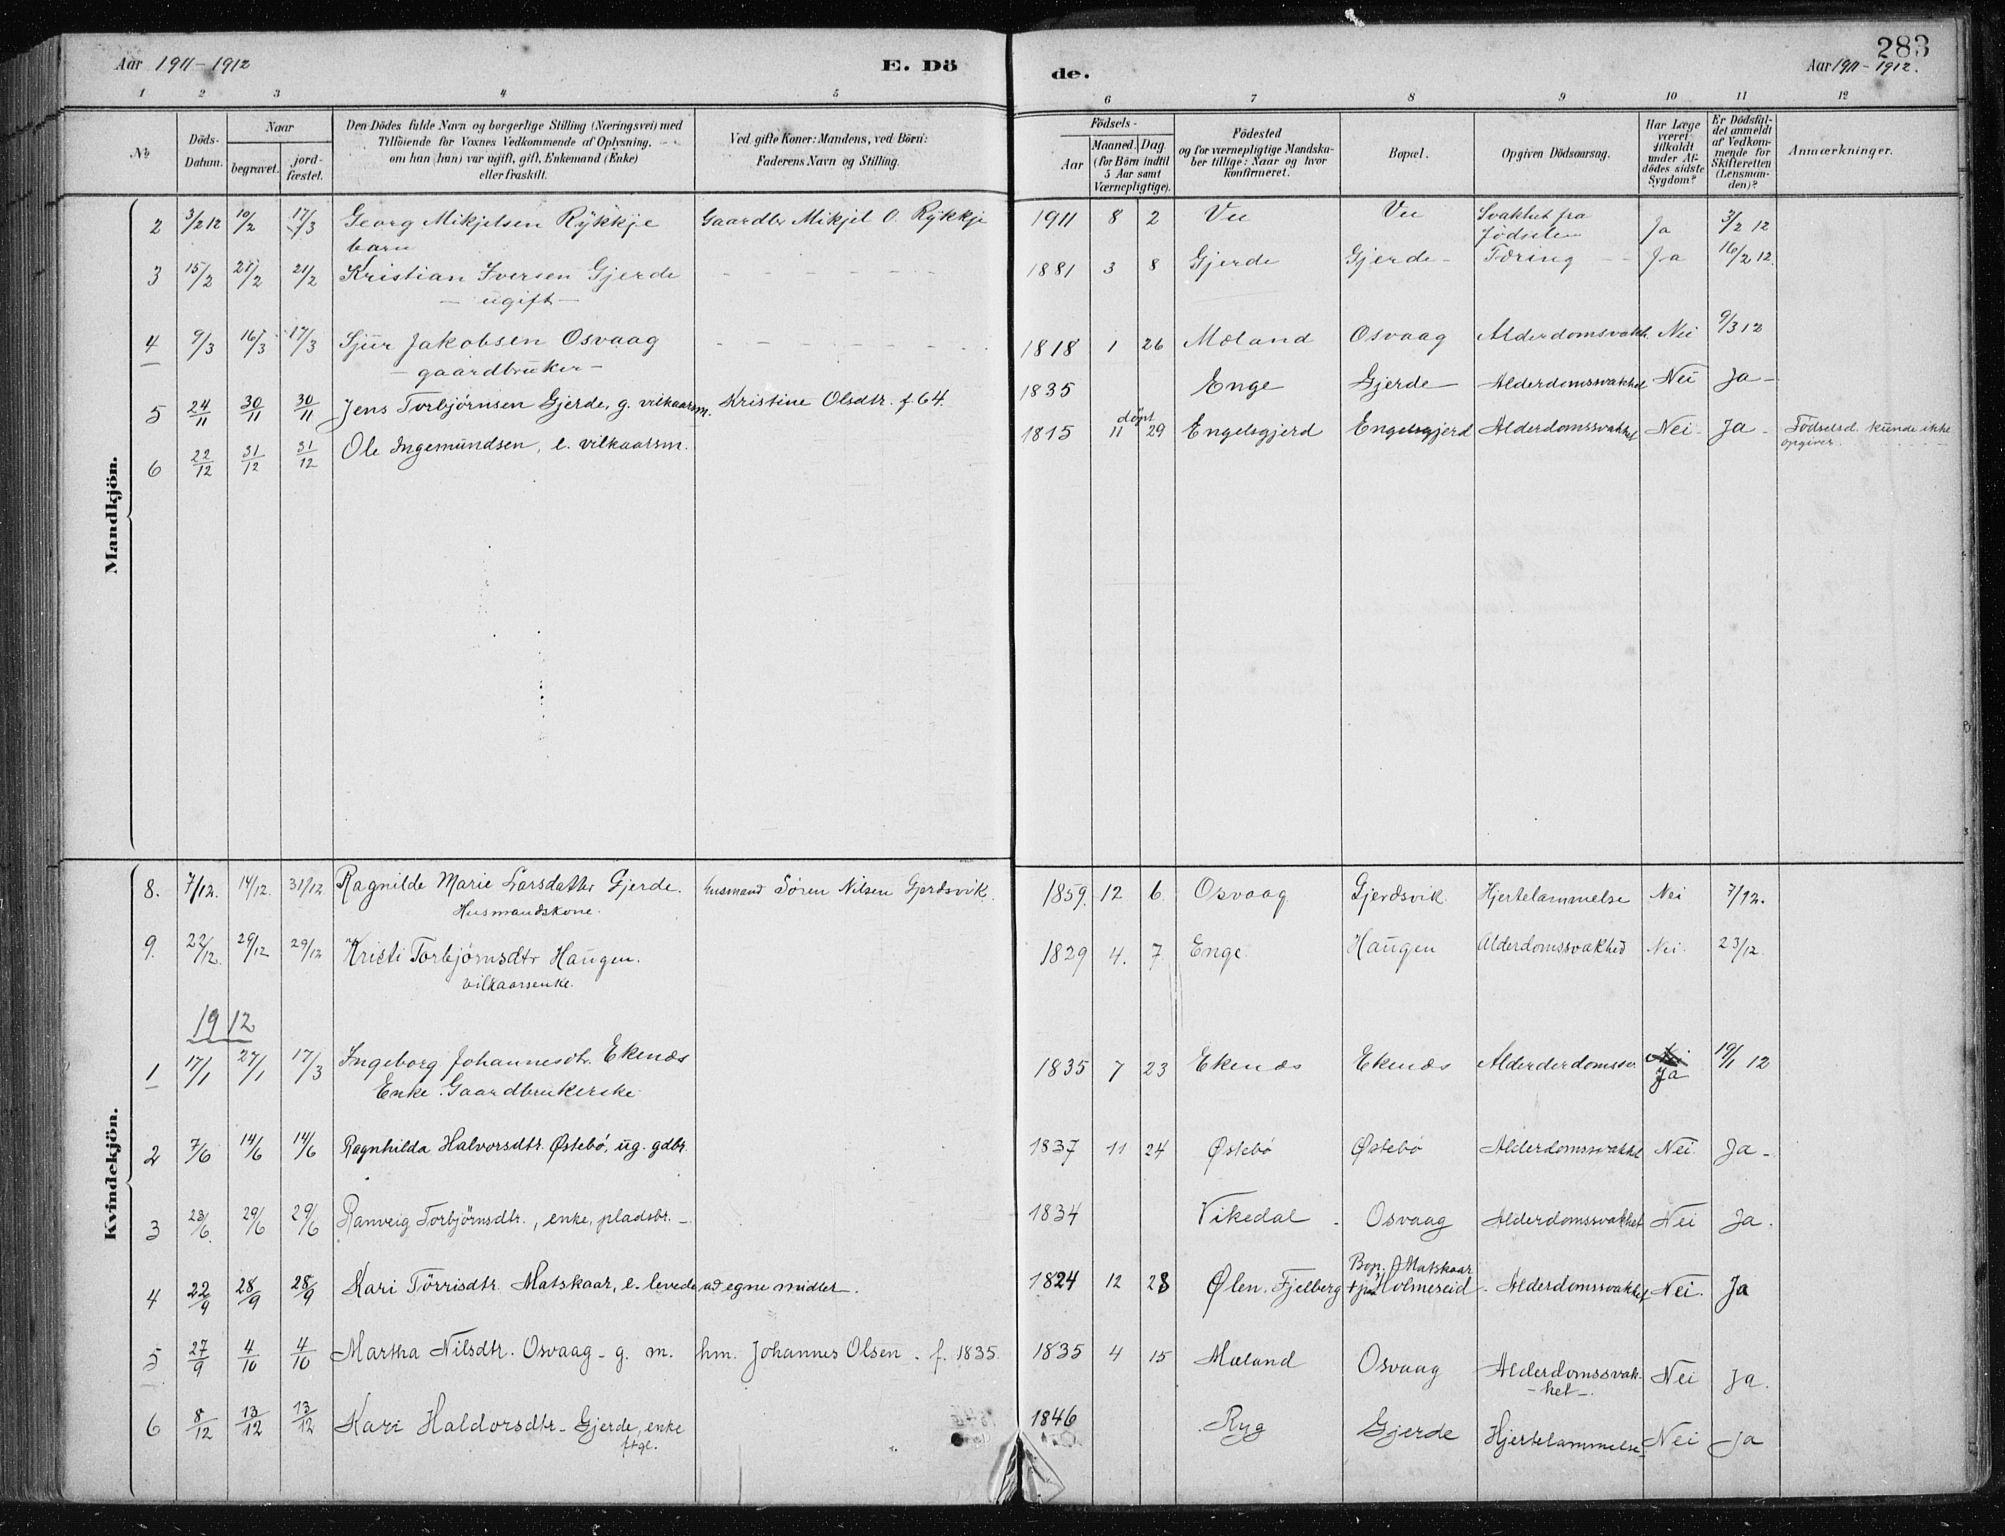 Aar 1911-1912
E. Dö
de.
283
Aar 1911-1912.
1 2 3 4 5 6 7 8 9 10 11 12
No
Döds-Datum.
Naar
begravet.
jord-fæstet.
Den Dödes fulde Navn og borgerlige Stilling (Næringsvei) med
Tilföiende for Voxnes Vedkommende af Oplysning,
om han (hun) var ugift, gift, Enkemand (Enke)
eller fraskilt.
Ved gifte Koner: Mandens, ved Börn:
Faderens Navn og Stilling.
Födsels-
Aar
Maaned. Dag
(for Börn indtil
5 Aar samt
Værnepligtige).
Födested
og for værnepligtige Mandska-
ber tillige: Naar og hvor
konfirmeret.
Bopæl.
Opgiven Dödsaarsag.
Har Læge
været
tilkaldt
under Af-
dödes sidste
Sygdom?
Er Dödsfal-
det anmeldt
af Vedkom-
mende for
Skifteretten
(Lensman-
den)?
Anmærkninger.
Mandkjön.
2 3/2 12 10/2 17/3 Georg Mikjelsen Rykkje Gaardbr Mikjel O. Rykkje 1911 8 2 Vee Vee Svakhet fra Ja 3/2 12
barn fødselen
3 15/2 21/2 21/2 Kristian Iversen Gjerde - - - - - - 1881 3 8 Gjerde Gjerde - Tæring - - Ja 16/2 12.
- ugift -
4 9/3 16/3 17/3 Sjur Jakobsen Osvaag - - - - - - 1818 1 26 Mæland Osvaag Alderdomsvakh. Nei 9/3 12
- gaardbruker -
5 24/11 30/11 30/11 Jens Torbjørnsen Gjerde, g. vilkaarsm. Kristine Olsdtr. f. 64. 1835 Enge Gjerde Alderdomssvakhet Nei Ja -
6 22/12 31/12 31/12 Ole Ingemundsen, e. vilkaarsm. 1815 døpt 11 29 Engelsgjerd Engelsgjerd Alderdomssvakhet Nei - Ja - Fødselsd. kunde ikke
opgives.
Kvindekjön.
8. 7/12. 14/12. 31/12 Ragnilde Marie Larsdatter Gjerde. husmand Søren Nilsen Gjerdsvik. 1859. 12 6. Osvaag Gjerdsvik Hjertelammelse Nei 7/12.
Husmandskone.
9. 22/12. 29/12 29/12 Kristi Torbjørnsdtr Haugen. 1829 4. 7. Enge. Haugen Alderdomssvakhed Nei. 23/12
vilkaarsenke.
1912
1 17/1 27/1 17/3 Ingeborg Johannesdtr. Ekenæs 1835 7 23 Ekenæs Ekenæs Alderderdomssv. Nei Ja 19/1 12
Enke. Gaardbrukerske
2 7/6 14/6 14/6 Ragnhilda Halvorsdtr. Østebø, ug. gdbr. 1837 11 24 Østebø Østebø Alderdomssvakhet Nei Ja -
3 23/6. 29/6 29/6 Ranveig Torbjørnsdtr., enke, pladsbr. - 1834 Vikedal - Osvaag Alderdomssvakhet Nei Ja.
4 22/9 28/9 28/9 Kari Tørrisdtr. Matskaar, e. levede ad egne midler. 1824 12 28 Ølen, Fjelberg Bop. Matskaar Holmeseid. Alderdomssvakhet Nei. Ja
5 27/9 4/10 4/10 Martha Nilsdtr. Osvaag - g. m. hm. Johannes Olsen. f. 1835. 1835 4 15 Mæland Osvaag Alderdomssvak- Nei Ja.
-het-.
6 8/12 13/12 13/12 Kari Haldorsdtr. Gjerde, enke 1846 Ryg Gjerde Hjertelammelse Nei Ja
ftgl.